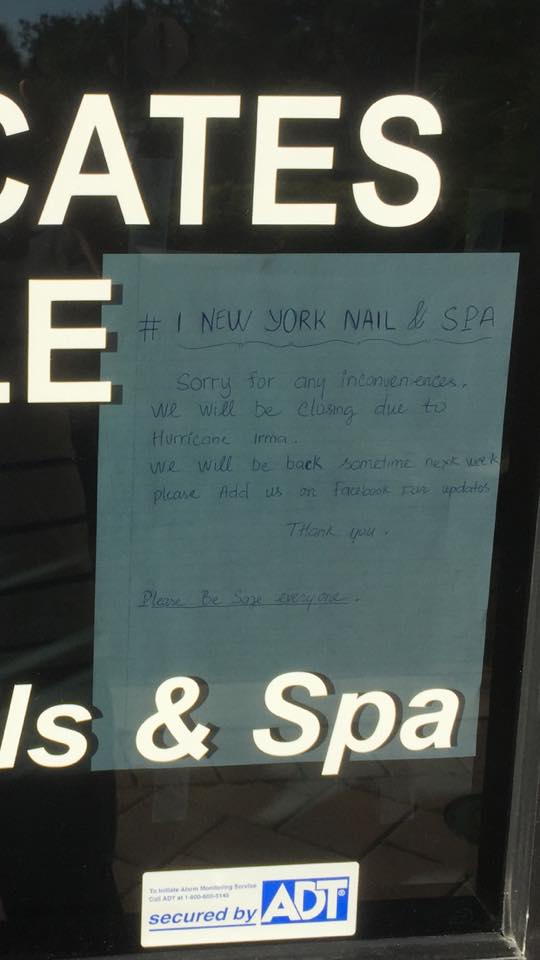 CATES
LE
# 1 NEW YORK NAIL & SPA
Sorry for any inconveniences.
We will be closing due to
Hurricane Irma.
We will be back sometime next week
please Add us on Facebook For updates
THank you.
Please Be Safe everyone.
ls & Spa
To Initiate Alarm Monitoring Service
Call ADT at
secured by ADT